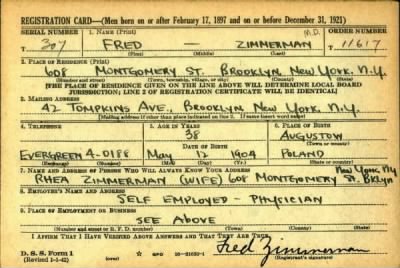 REGISTRATION CARD—(Men born on or after February 17, 1897 and on or before December 31, 1921)
SERIAL NUMBER 1. NAME (Print) M.D. ORDER NUMBER
307 FRED — ZIMMERMAN 11617
(First) (Middle) (Last)
2. PLACE OF RESIDENCE (Print)
608 MONTGOMERY ST. BROOKLYN NEW YORK. N.Y.
(Number and street) (Town, township, village, or city) (County) (State)
[THE PLACE OF RESIDENCE GIVEN ON THE LINE ABOVE WILL DETERMINE LOCAL BOARD
JURISDICTION; LINE 2 OF REGISTRATION CERTIFICATE WILL BE IDENTICAL]
3. MAILING ADDRESS
42 TOMPKINS AVE., BROOKLYN NEW YORK. N.Y.
[Mailing address if other than place indicated on line 2. If same insert word same]
4. TELEPHONE 5. AGE IN YEARS 6. PLACE OF BIRTH
38 AUGUSTOW
DATE OF BIRTH (Town or county)
EVERGREEN 4-0188 MAY 12 1904 POLAND
(Exchange) (Number) (Mo.) (Day) (Yr.) (State or country)
7. NAME AND ADDRESS OF PERSON WHO WILL ALWAYS KNOW YOUR ADDRESS New York NY
RHEA ZIMMERMAN (WIFE) 608 MONTGOMERY ST. BKLYN
8. EMPLOYER'S NAME AND ADDRESS
SELF EMPLOYED - PHYSICIAN
9. PLACE OF EMPLOYMENT OR BUSINESS
SEE ABOVE
(Number and street or R. F. D. number) (Town) (County) (State)
I AFFIRM THAT I HAVE VERIFIED ABOVE ANSWERS AND THAT THEY ARE TRUE.
D. S. S. Form 1 Fred Zimmerman
(Revised 1-1-42) GPO 16-21630-1 (Registrant's signature)